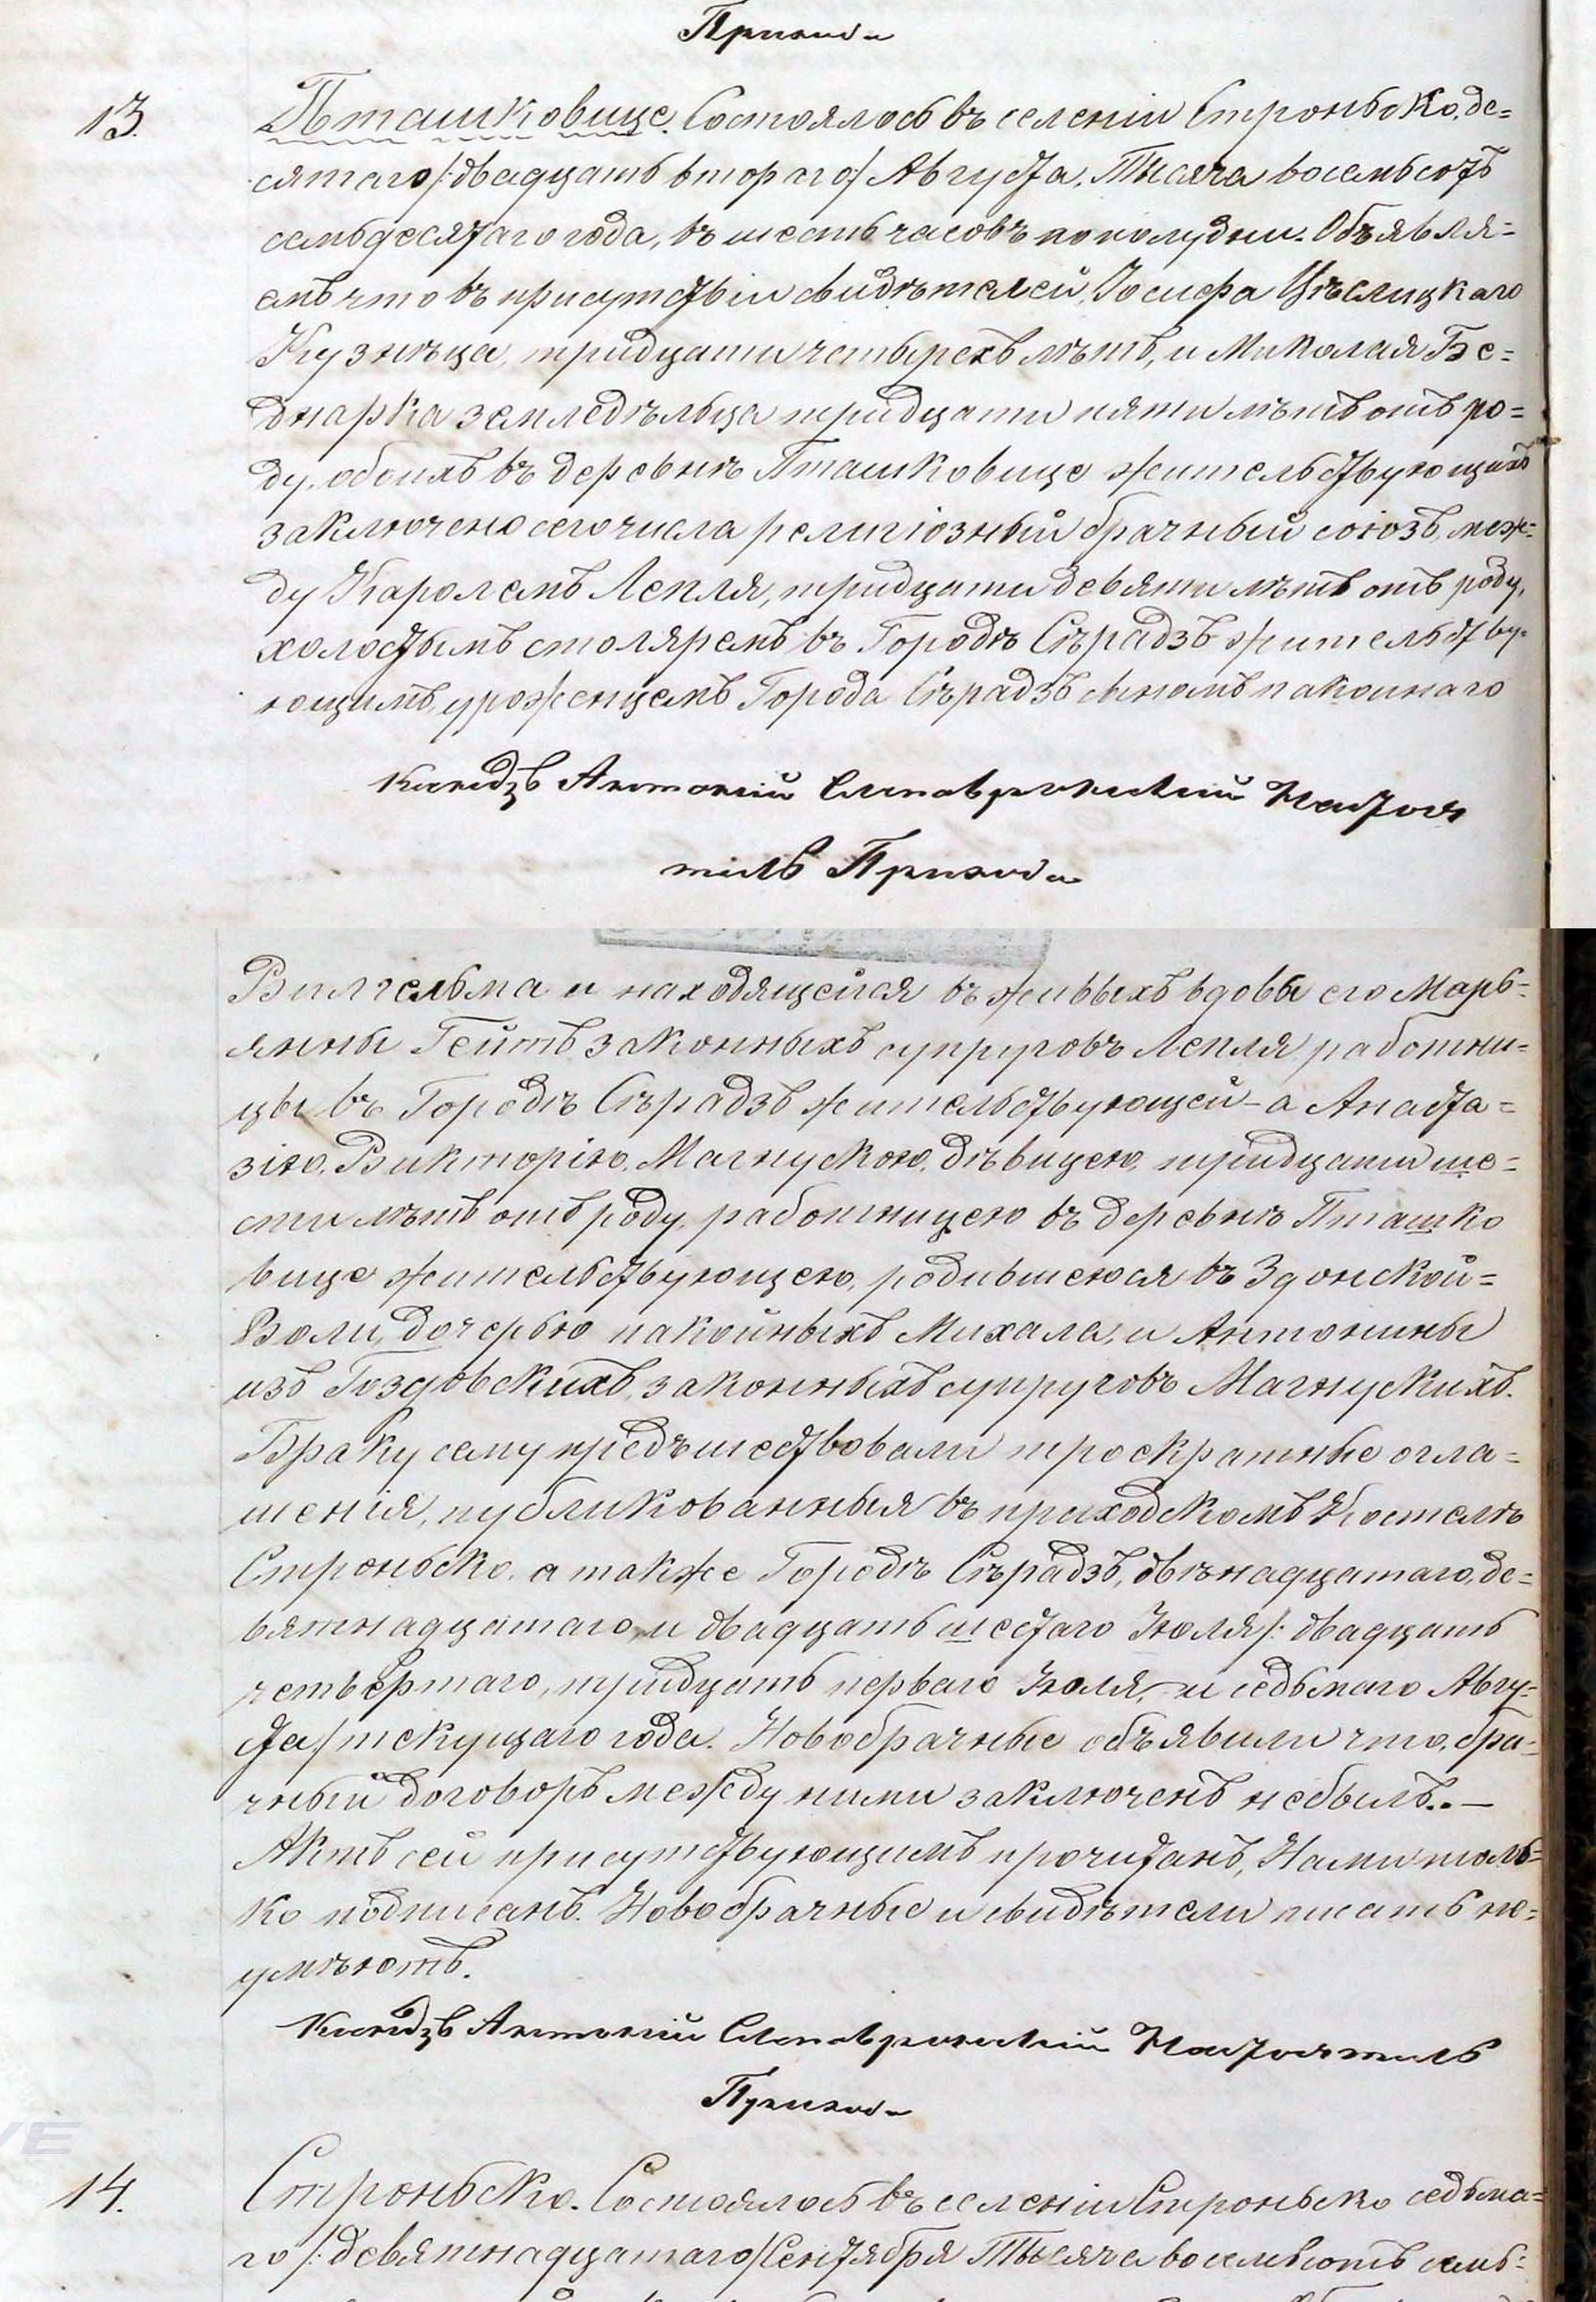 Прихода
13.
Пташковице. Состоялось въ селеніи Строньско, де=
сятаго /:двадцать втораго:/ Августа, Тысяча восемьсотъ
семьдесятаго года, въ шесть часовъ пополудни. Объявля=
емъ что въ присутствіи свидѣтелей, Іосифа Цѣслицкаго
Кузнѣца, тридцати четырехъ лѣтъ, и Миколая Бе=
днарка земледѣльца тридцати пяти лѣтъ отъ ро=
ду, обоихъ въ деревнѣ Пташковице жительствующихъ
заключено сего числа религіозный брачный союзъ, меж=
ду Каролемъ Лепля, тридцати девяти лѣтъ отъ роду,
холостымъ столяремъ въ Городѣ Сѣрадзѣ жительству=
ющимъ, уроженцемъ Города Сѣрадзѣ сыномъ покойнаго
Ксендзъ Антоній Настоя
тель Прихода
Вильгельма и находящейся въ живыхъ вдовы его Марь=
янны Гейтъ законныхъ супруговъ Лепля работни=
цы въ Городѣ Сѣрадзѣ жительствующей – а Анаста=
зіею, Викторіею, Магнускою, дѣвицею, тридцати ше=
сти лѣтъ отъ роду, работницею въ деревнѣ Пташко
вице жительствующею, родившеюся въ Здонской=
Воли, дочерью покойныхъ Михала, и Антонины
изъ Гоздовскихъ, законныхъ супруговъ Магнускихъ.
Браку сему предъшествовали троекратные огла=
шенія, публикованныя въ приходскомъ Костелѣ
Строньско, а также Городѣ Сѣрадзѣ, двѣнадцатаго, де=
вятнадцатаго, и двадцать шестаго Іюля /: двадцать
четвертаго, тридцать перваго Іюля, и седьмаго Авгу=
ста/ текущаго года. Новобрачные объявили что, бра=
чный договоръ между ними заключенъ небылъ. –
Актъ сей присутствующимъ прочитанъ, Нами толь=
ко подписанъ. Новобрачные и свидѣтели писать не=
умѣютъ.
Ксендзъ Антоній Настоятель
Прихода
14.
Строньско. Состоялось въ селеніи Строньско седьма=
го /: девятнадцатаго/ Сентября Тысяча восемьсотъ семь=